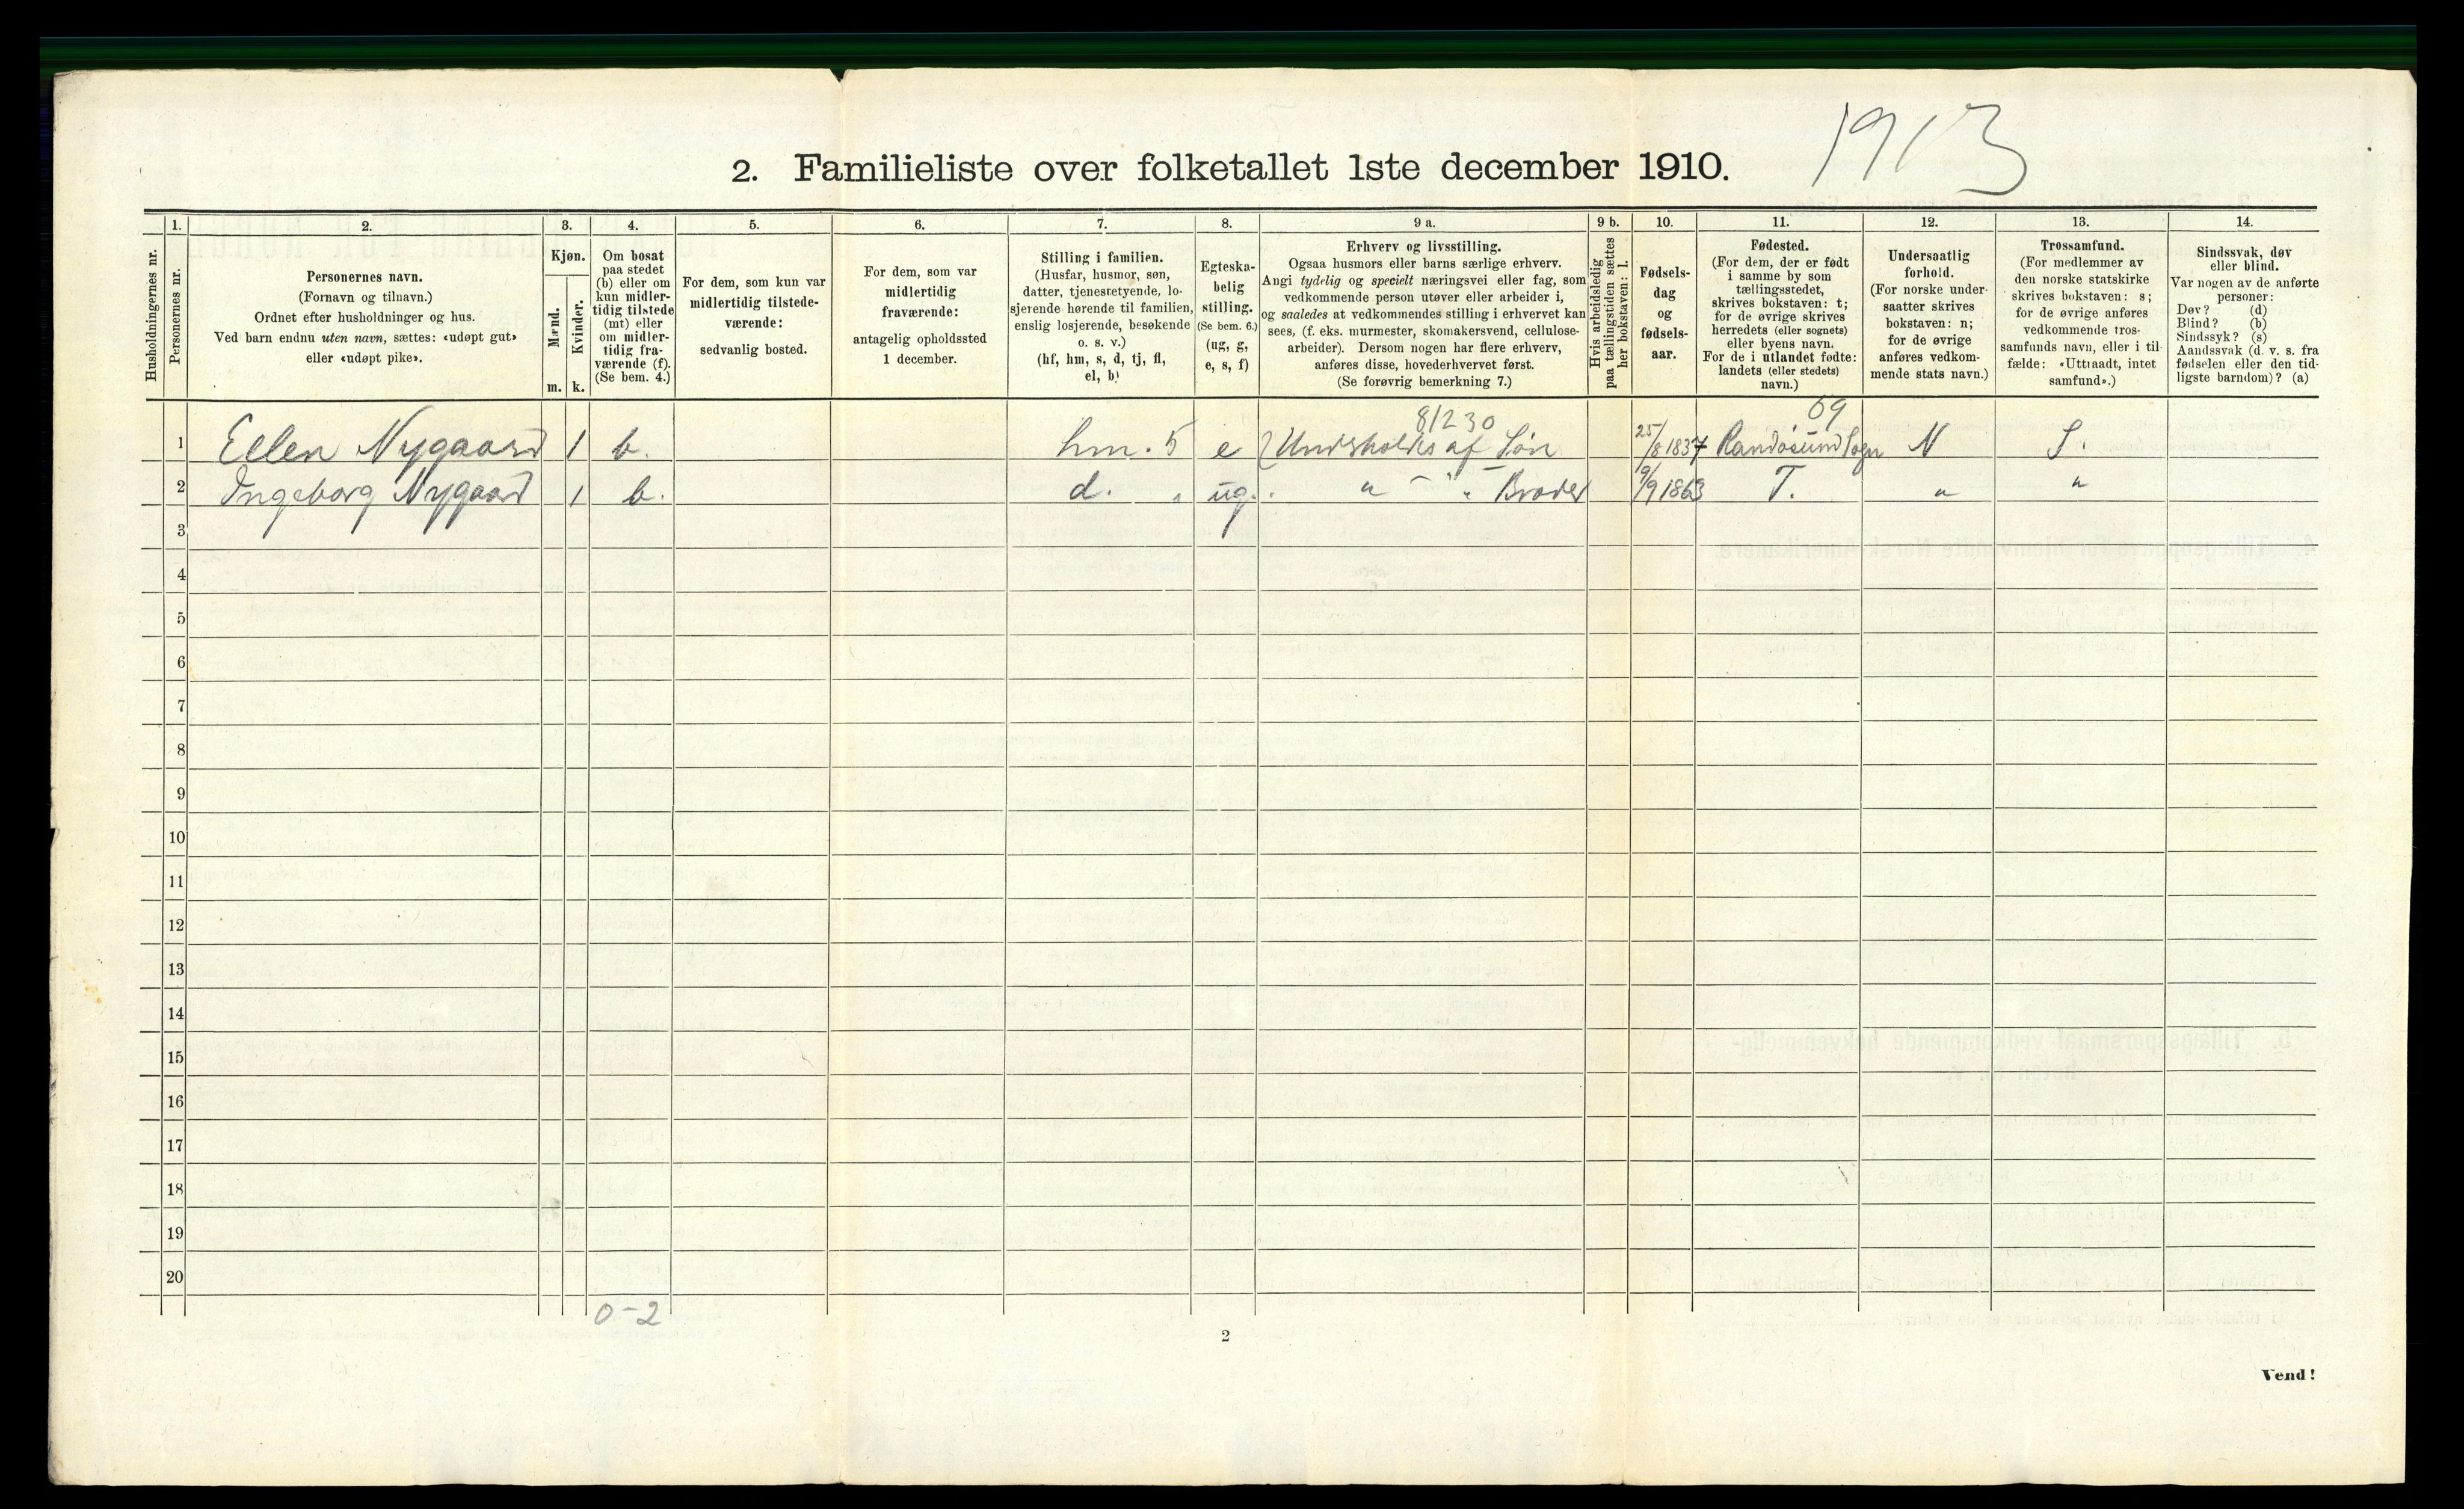 1913
2. Familieliste over folketallet 1ste december 1910.
1. 2. 3. 4. 5. 6. 7. 8. 9 a. 9 b. 10. 11. 12. 13. 14.
Husholdningernes nr.
Personernes nr.
Personernes navn.
(Fornavn og tilnavn.)
Ordnet efter husholdninger og hus.
Ved barn endnu uten navn, sættes: «udøpt gut»
eller «udøpt pike».
Kjøn.
Mænd.
Kvinder.
m. k.
Om bosat
paa stedet
(b) eller om
kun midler-
tidig tilstede
(mt) eller
om midler-
tidig fra-
værende (f).
(Se bem. 4.)
For dem, som kun var
midlertidig tilstede-
værende:
sedvanlig bosted.
For dem, som var
midlertidig
fraværende:
antagelig opholdssted
1 december.
Stilling i familien.
(Husfar, husmor, søn,
datter, tjenestetyende, lo-
sjerende hørende til familien,
enslig losjerende, besøkende
o. s. v.)
(hf, hm, s, d, tj, fl,
el, b)
Egteska-
belig
stilling.
(Se bem. 6.)
(ug, g,
e, s, f)
Erhverv og livsstilling.
Ogsaa husmors eller barns særlige erhverv.
Angi tydelig og specielt næringsvei eller fag, som
vedkommende person utøver eller arbeider i,
og saaledes at vedkommendes stilling i erhvervet kan
sees, (f. eks. murmester, skomakersvend, cellulose-
arbeider). Dersom nogen har flere erhverv,
anføres disse, hovederhvervet først.
(Se forøvrig bemerkning 7.)
Hvis arbeidsledig
paa tællingstiden sættes
her bokstaven: l.
Fødsels-
dag
og
fødsels-
aar.
Fødested.
(For dem, der er født
i samme by som
tællingsstedet,
skrives bokstaven: t;
for de øvrige skrives
herredets (eller sognets)
eller byens navn.
For de i utlandet fødte:
landets (eller stedets)
navn.)
Undersaatlig
forhold.
(For norske under-
saatter skrives
bokstaven: n;
for de øvrige
anføres vedkom-
mende stats navn.)
Trossamfund.
(For medlemmer av
den norske statskirke
skrives bokstaven: s;
for de øvrige anføres
vedkommende tros-
samfunds navn, eller i til-
fælde: «Uttraadt, intet
samfund».)
Sindssvak, døv
eller blind.
Var nogen av de anførte
personer:
Døv? (d)
Blind? (b)
Sindssyk? (s)
Aandssvak (d. v. s. fra
fødselen eller den tid-
ligste barndom)? (a)
81230 69
1 Ellen Nygaard 1 b. hm. 5 e Undsholdes af Søn 25/8 1837 Randøsund Sogn N S.
2 Ingeborg Nygaard 1 b. d. " ug. " " " Broder 9/9 1863 T. " "
3
4
5
6
7
8
9
10
11
12
13
14
15
16
17
18
19
20
0-2
2
Vend!